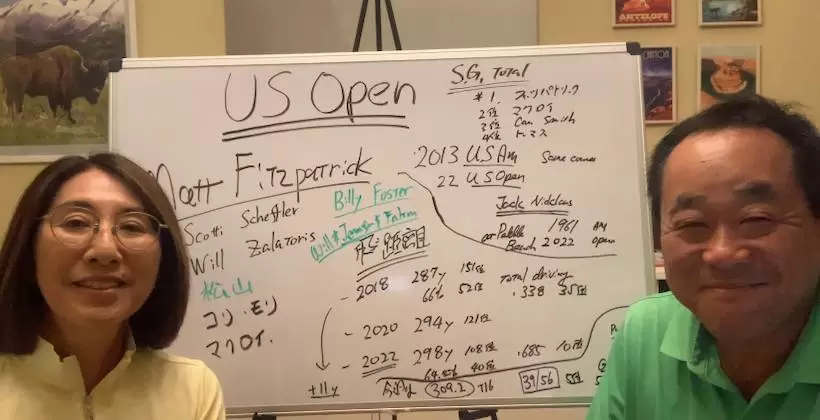 US Open
S.G. Total
#1. フィツパトリック
2位 マクロイ
3位 Cam Smith
4位 トーマス
Matt Fitzpatrick
2013 US Am Same course
22 US Open
Scotti Scheffler
Billy Foster
Jack Nicklaus
Will Zalatoris
at Pebble Beach 1961 AM
2022 open
松山
飛距離
コリ・モリ
2018 287y 151位 Total driving
66% 52位 .338 35位
マクロイ.
2020 294y 121位
2022 298y 108位 .685 10位
40位
+11y
309.2 T16
39/56
ANTELOPE
CANYON